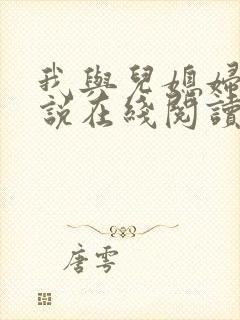 我與兒媳婦
說在綫閱讀
唐雩